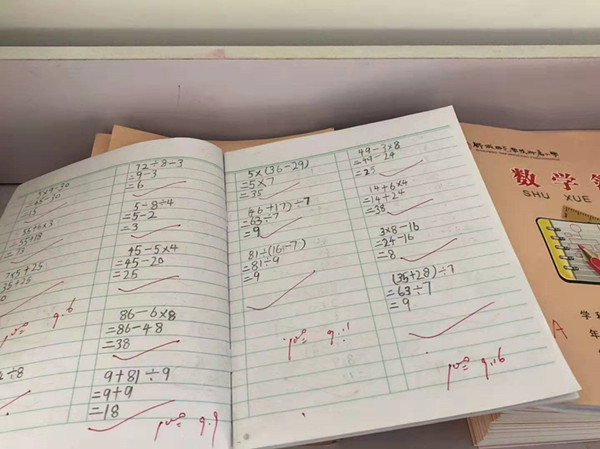 35+6×3
=35+18
7×5+25
35+25
9.6
÷8
72÷8-3
=9-3
=6
5-8÷4
=5-2
=3
45-5×4
=45-20
=25
86-6×8
=86-48
=38
9+81÷9
=9+9
=18
9.9
5×(36-29)
=5×7
=35
(46+17)÷7
=63÷7
=9
81÷(16-7)
=81÷9
=9
9.1
49-3×8
=49-24
=25
14+6×4
=14+24
=38
3×8-16
=24-16
=8
(35+28)÷7
=63÷7
=9
9.16
数学
SHU XUE
学
年
A